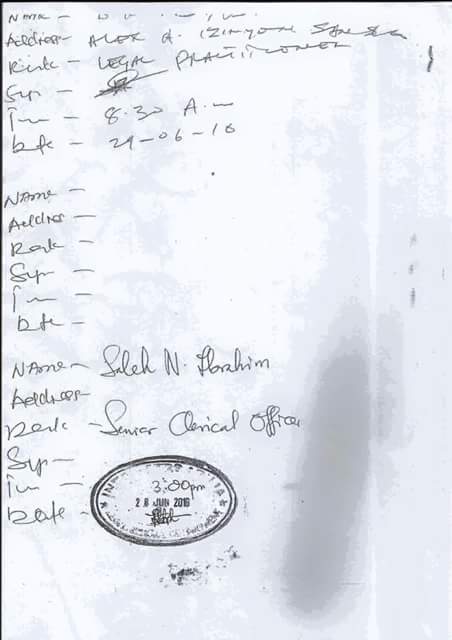 Name -
Address - ALEX A. IZINYON SAN &
Rank - LEGAL PRACTITIONER
Sign -
Time - 8.30 A.m
Date - 29-06-16
Name -
Address -
Rank -
Sign -
Time -
Date -
Name - Saleh N. Ibrahim
Address
Rank - Senior Clerical Officer
Sign -
Time - 3:00pm
28 JUN 2016
Date -